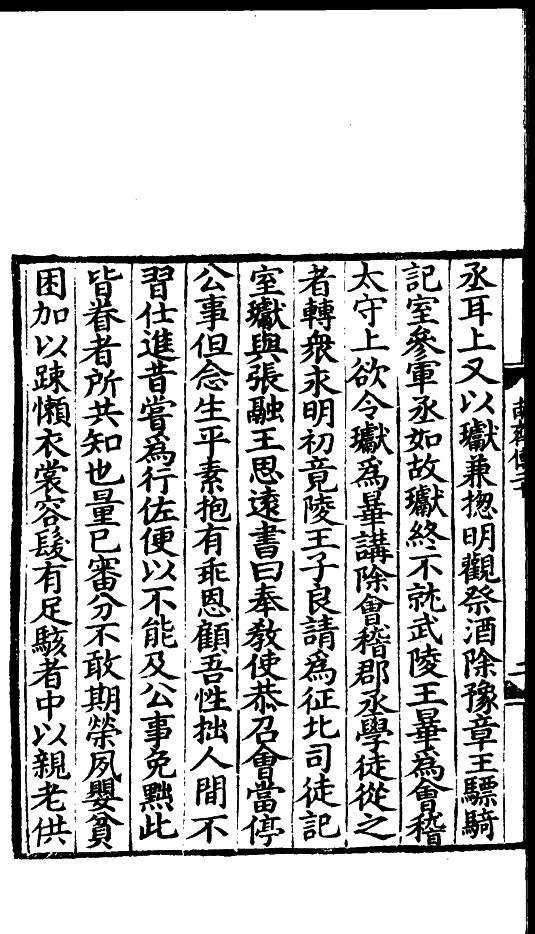 丞耳上又以瓛兼揔明觀祭酒除豫章王驃騎
記室參軍丞如故瓛終不就武陵王曅爲會稽
太守上欲令瓛爲曅講除會稽郡丞學徒從之
者轉衆永明初竟陵王子良請爲征北司徒記
室瓛與張融王思遠書曰奉敎使恭召會當停
公事但念生平素抱有乖恩顧吾性拙人間不
習仕進昔嘗爲行佐便以不能及公事免黜此
皆眷者所共知也量已審分不敢期榮夙嬰貧
困加以踈懶衣裳容髮有足駭者中以親老供